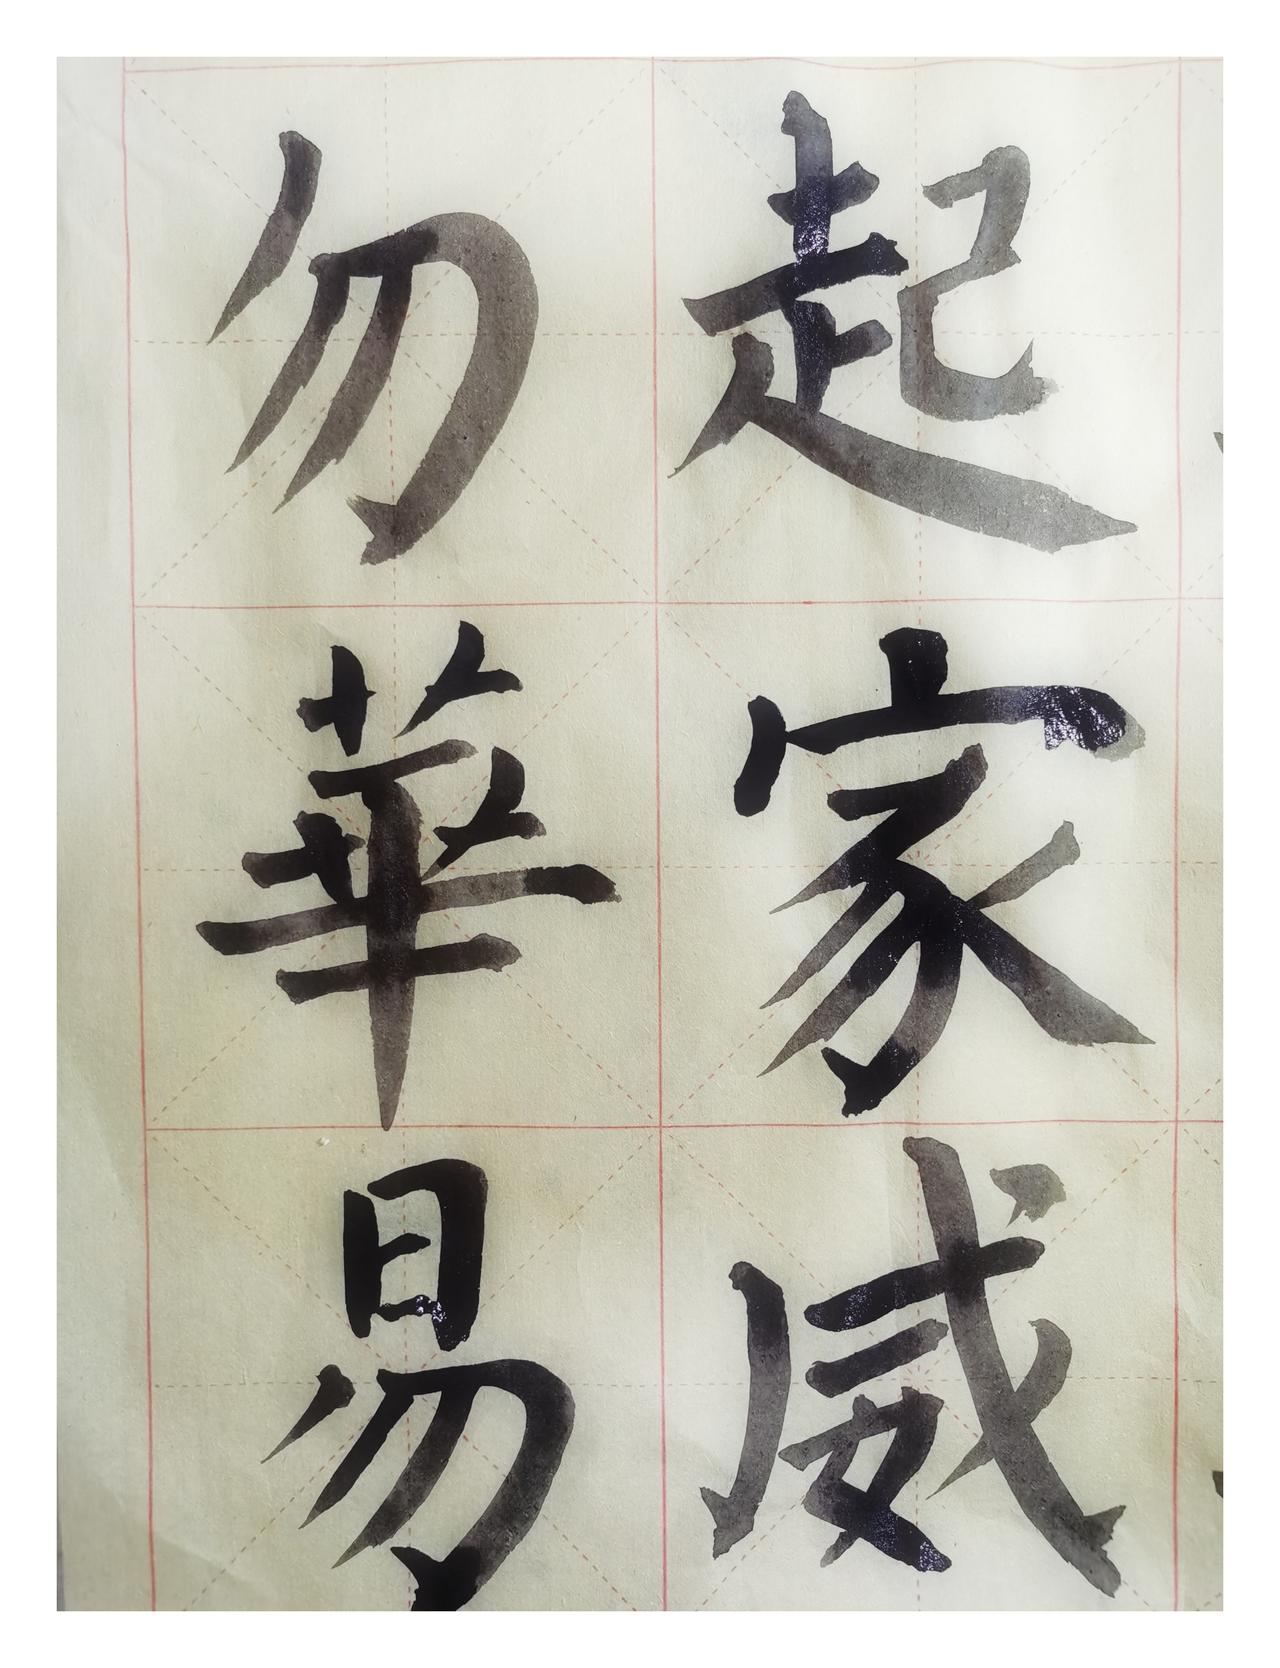 起家威
勿華易